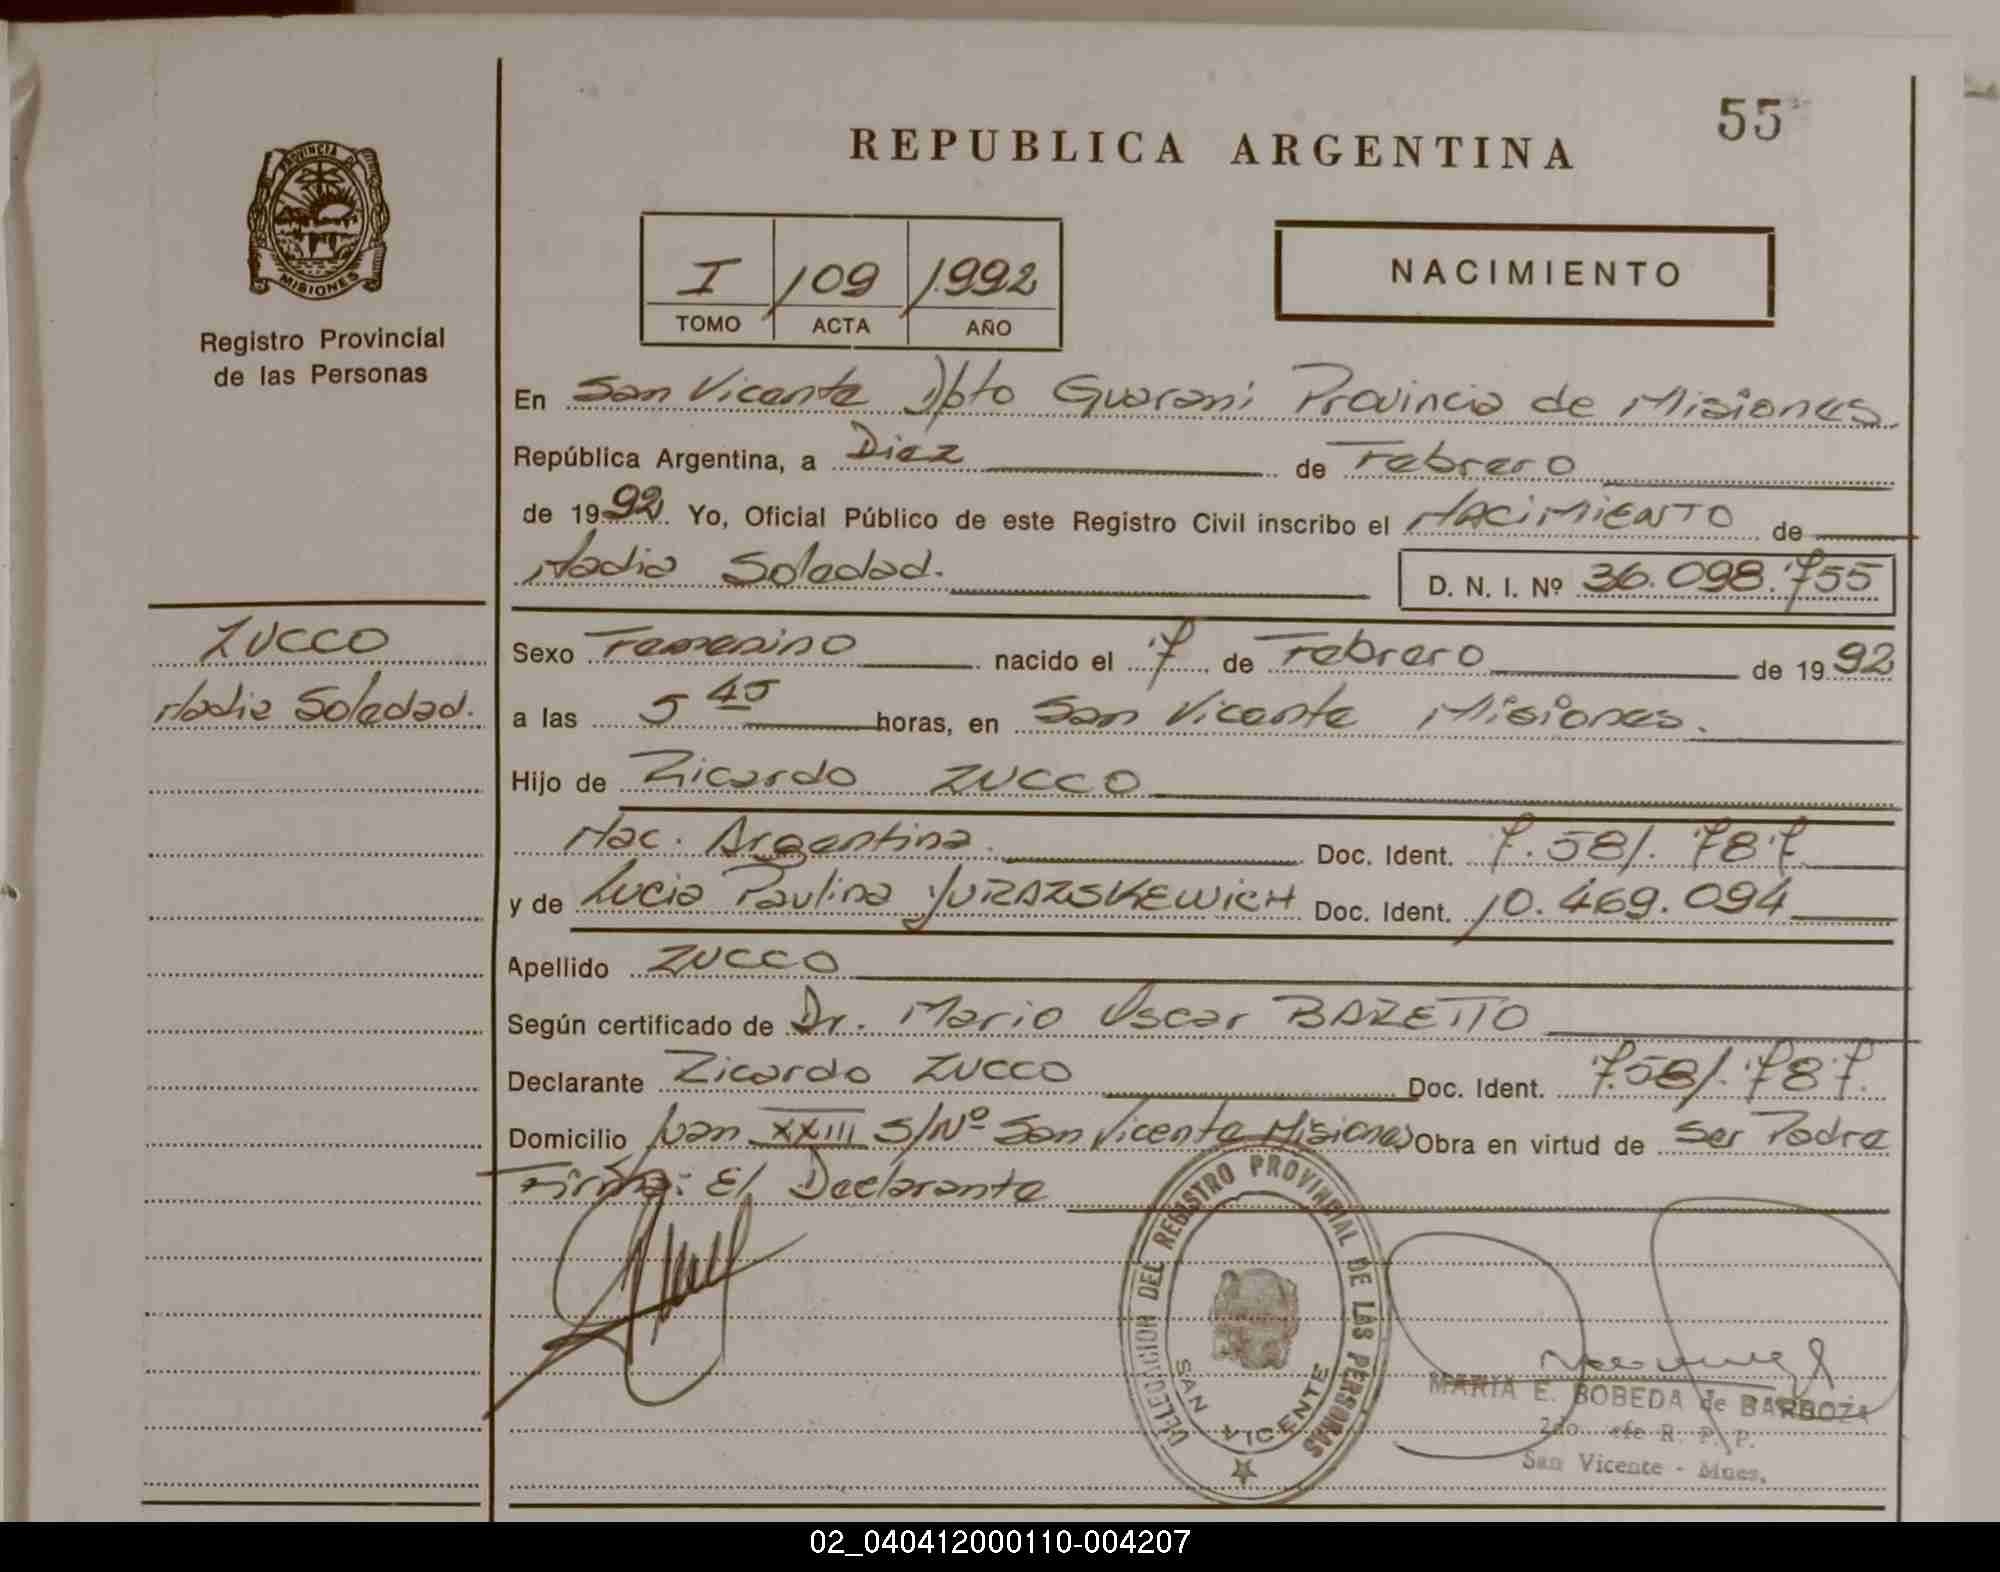 55
REPUBLICA ARGENTINA
PROVINCIA DE
MISIONES
Registro Provincial
de las Personas
I 109 1992
TOMO ACTA AÑO
NACIMIENTO
En San Vicente Dpto Guarani Provincia de Misiones
República Argentina, a Diez de Febrero
de 1992. Yo, Oficial Público de este Registro Civil inscribo el NACIMIENTO de
Nadia Soledad. D. N. I. Nº 36.098.755
ZUCCO
Nadia Soledad.
Sexo Femenino nacido el 7 de Febrero de 1992
a las 5 45 horas, en San Vicente Misiones.
Hijo de Ricardo ZUCCO
Nac. Argentina. Doc. Ident. 7.581.787
y de Lucia Paulina YURAZSKEWICH Doc. Ident. 10.469.094
Apellido ZUCCO
Según certificado de Dr. Mario Oscar BAZETTO
Declarante Ricardo ZUCCO Doc. Ident. 7.581.787.
Domicilio Juan XXIII S/Nº San Vicente Misiones Obra en virtud de Ser Padre
Firma: El Declarante
DELEGACION DEL REGISTRO PROVINCIAL DE LAS PERSONAS
SAN VICENTE
MARIA E. BOBEDA de BARBOZA
2do. Jefe R. P. P.
San Vicente - Mnes.
02_040412000110-004207